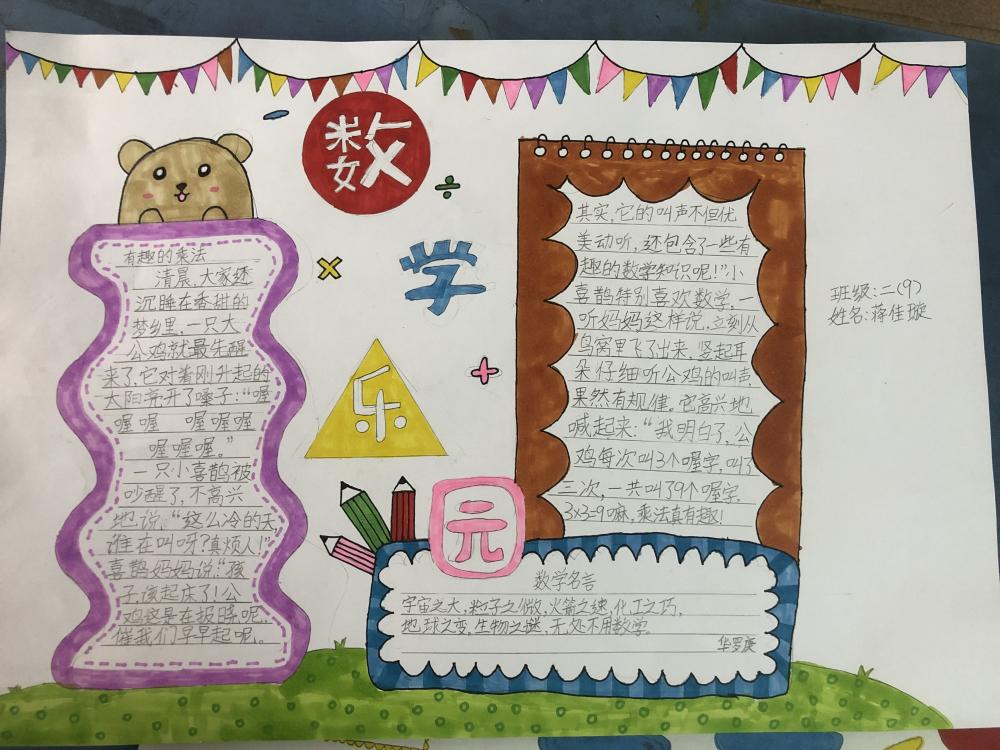 数
学
乐
园
有趣的乘法
清晨,大家还
沉睡在香甜的
梦乡里,一只大
公鸡就最先醒
来了,它对着刚升起的
太阳亮开了嗓子:“喔
喔喔 喔喔喔
喔喔喔。”
一只小喜鹊被
吵醒了,不高兴
地说,“这么冷的天,
谁在叫呀?真烦人!”
喜鹊妈妈说:“孩
子,该起床了!公
鸡这是在报晓呢..
催我们早早起呢。
其实,它的叫声不但优
美动听,还包含了一些有
趣的数学知识呢!”小
喜鹊特别喜欢数学,一
听妈妈这样说,立刻从
鸟窝里飞了出来,竖起耳
朵仔细听公鸡的叫声
果然有规律。它高兴地
喊起来:“我明白了,公
鸡每次叫3个喔字,叫了
三次,一共叫了9个喔字,
3x3=9嘛,乘法真有趣!
数学名言
宇宙之大,粒子之微,火箭之速,化工之巧,
地球之变,生物之谜,无处不用数学。
华罗庚
班级:二(9)
姓名:蒋佳璇